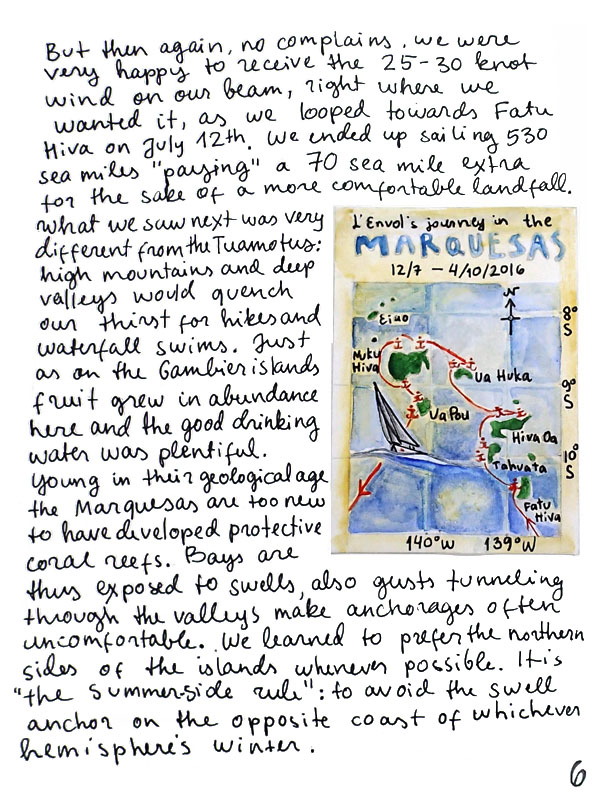 But then again, no complains, we were
very happy to receive the 25-30 knot
wind on our beam, right where we
wanted it, as we looped towards Fatu
Hiva on July 12th. We ended up sailing 530
sea miles "paying" a 70 sea mile extra
for the sake of a more comfortable landfall.
What we saw next was very
different from the Tuamotus:
high mountains and deep
valleys would quench
our thirst for hikes and
waterfall swims. Just
as on the Gambier islands
fruit grew in abundance
here and the good drinking
water was plentiful.
Young in their geological age
the Marquesas are too new
to have developed protective
coral reefs. Bays are
thus exposed to swells, also gusts tunneling
through the valleys make anchorages often
uncomfortable. We learned to prefer the northern
sides of the islands whenever possible. It is
"the summer-side rule": to avoid the swell
anchor on the opposite coast of whichever
hemisphere's winter.
L'Envol's journey in the
MARQUESAS
12/7 – 4/10/2016
N
8°
S
Eiao
Nuku
Hiva
Ua Huka
9°
S
Ua Pou
Hiva Oa
10°
S
Tahuata
Fatu
Hiva
140°W 139°W
6